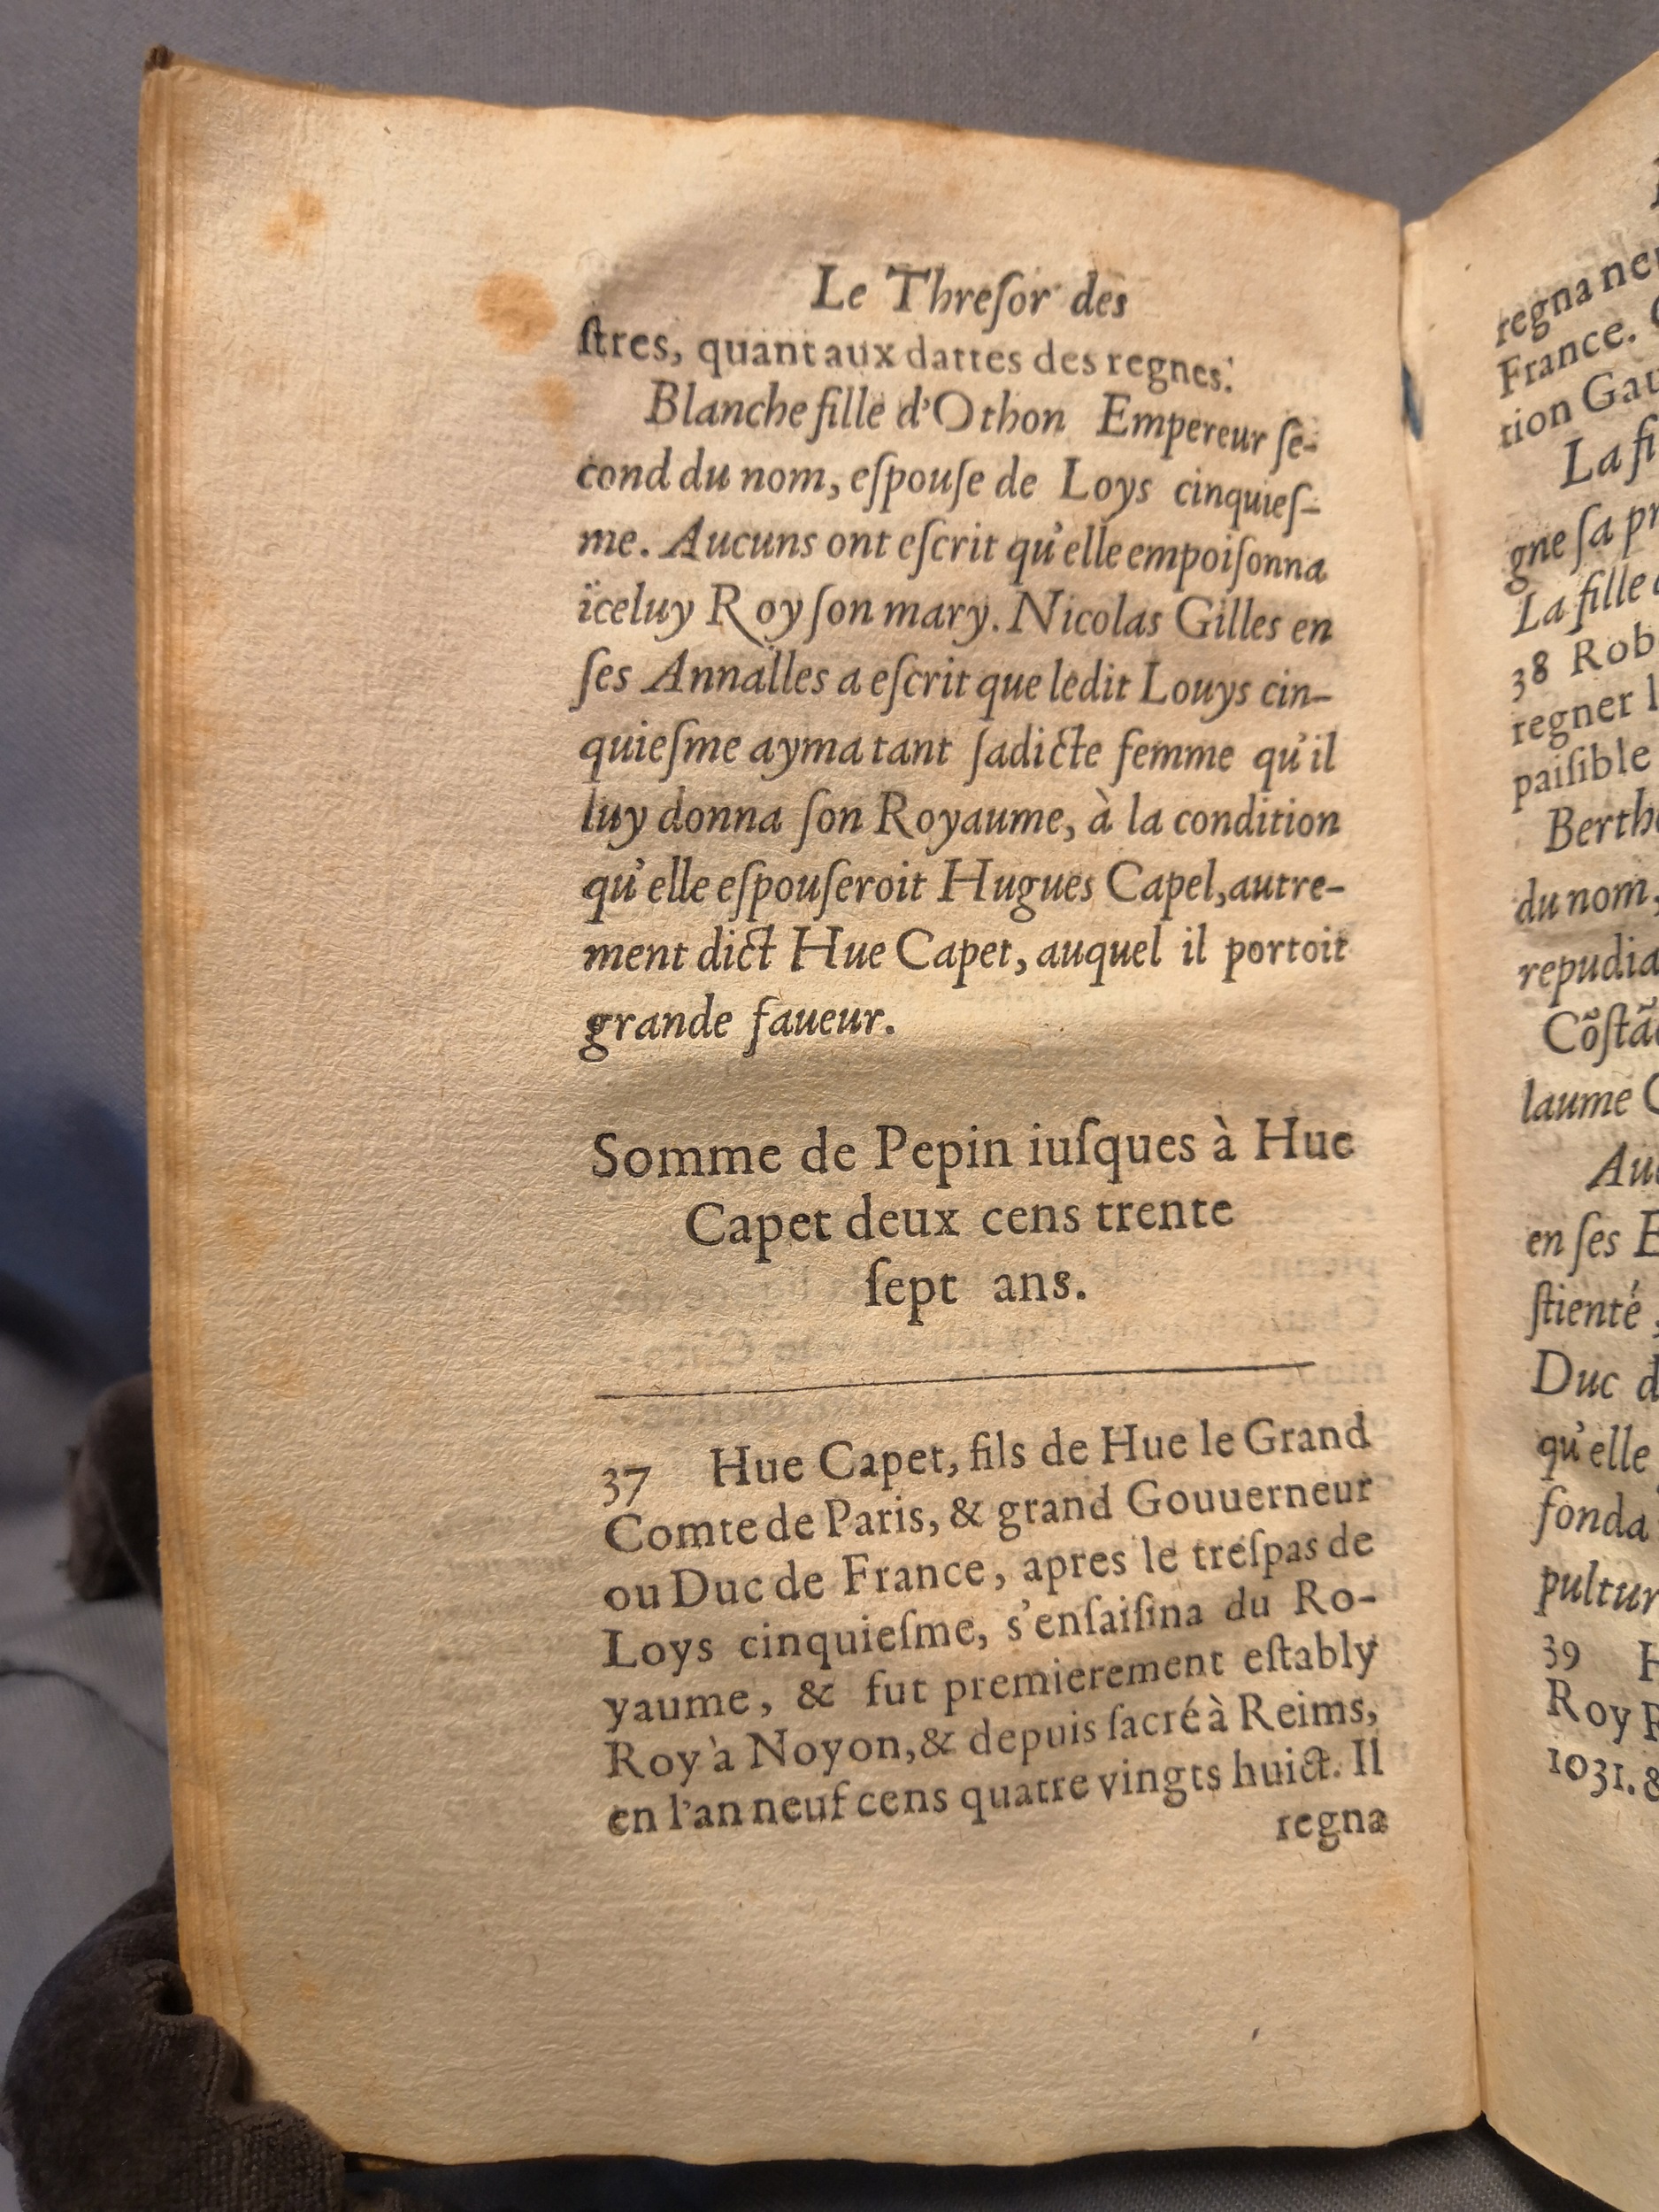 Le Threſor des
ſtres, quant aux dattes des regnes.
Blanche fille d'Othon Empereur ſe-
cond du nom, eſpouſe de Loys cinquieſ-
me. Aucuns ont eſcrit qu'elle empoiſonna
ïceluy Roy ſon mary. Nicolas Gilles en
ſes Annalles a eſcrit que ledit Louys cin-
quieſme ayma tant ſadicte femme qu'il
luy donna ſon Royaume, à la condition
qu'elle eſpouſeroit Hugues Capel, autre-
ment dict Hue Capet, auquel il portoit
grande faueur.
Somme de Pepin iuſques à Hue
Capet deux cens trente
ſept ans.
37 Hue Capet, fils de Hue le Grand
Comte de Paris, & grand Gouuerneur
ou Duc de France, apres le treſpas de
Loys cinquieſme, s'enſaiſina du Ro-
yaume, & fut premierement eſtably
Roy à Noyon, & depuis ſacré à Reims,
en l'an neuf cens quatre vingts huict. Il
regna
regna
France.
tion
La
gne ſa
La fille
38
regner
paiſible
du nom,
repudia
laume
en ſes
ſtienté
Duc
qu'elle
fonda
39
Roy
1031.